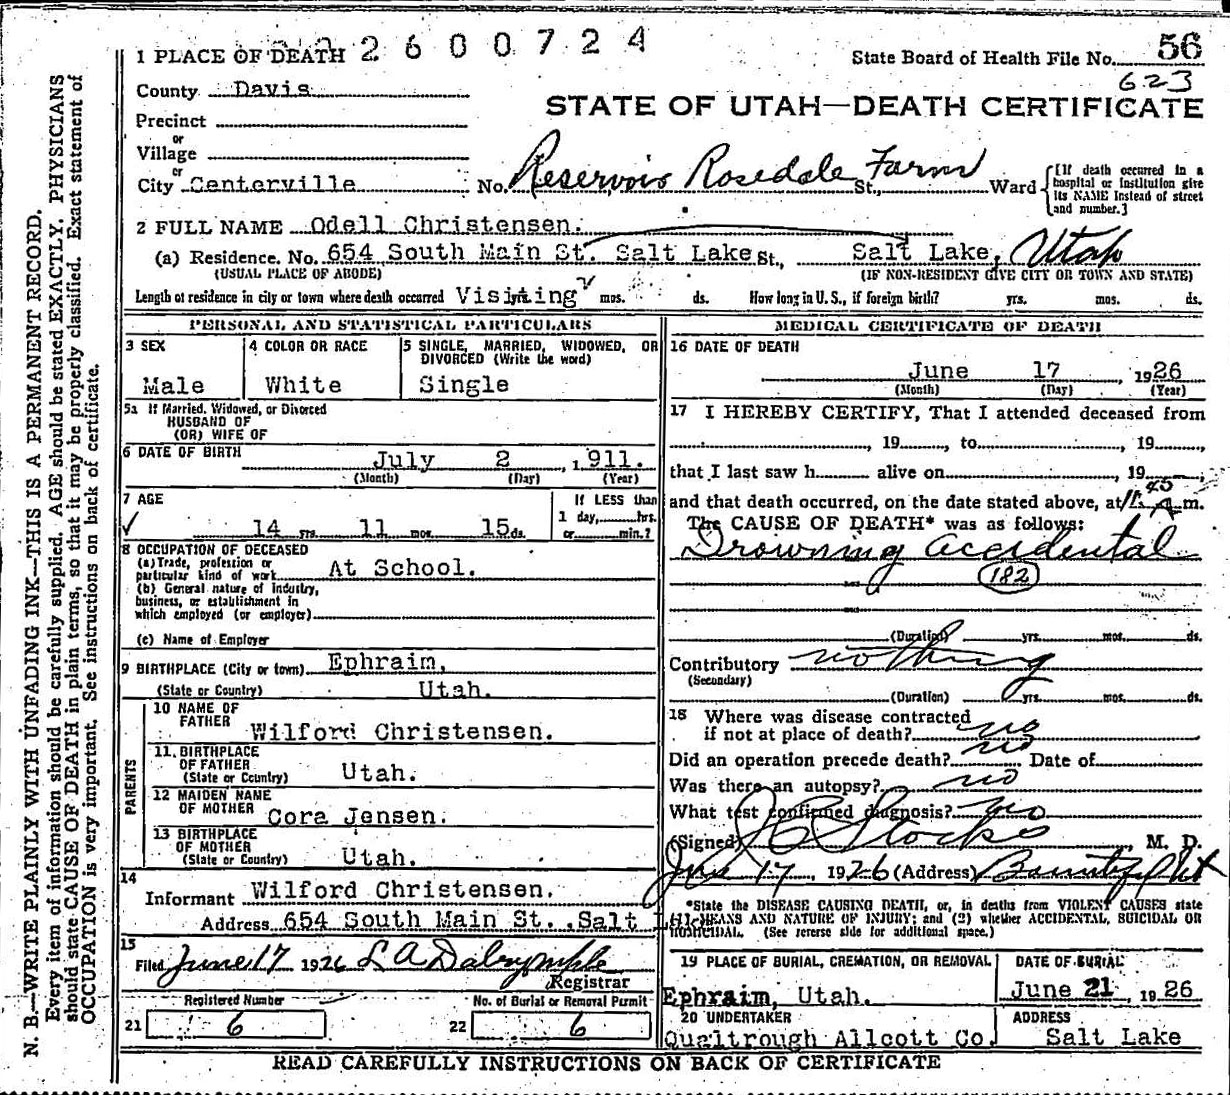 2600724
1 PLACE OF DEATH
State Board of Health File No. 56
623
County Davis
STATE OF UTAH—DEATH CERTIFICATE
Precinct
or
Village
or
City Centerville No. Reservoir Rosedale Farm St., Ward
[If death occurred in a hospital or institution give its NAME instead of street and number.]
2 FULL NAME Odell Christensen.
(a) Residence. No. 654 South Main St. Salt Lake St., Salt Lake, Utah
(USUAL PLACE OF ABODE) (IF NON-RESIDENT GIVE CITY OR TOWN AND STATE)
Length of residence in city or town where death occurred Visiting mos. ds. How long in U. S., if foreign birth? yrs. mos. ds.
PERSONAL AND STATISTICAL PARTICULARS
3 SEX
Male
4 COLOR OR RACE
White
5 SINGLE, MARRIED, WIDOWED, OR DIVORCED (Write the word)
Single
5a If Married, Widowed, or Divorced
HUSBAND OF
(OR) WIFE OF
6 DATE OF BIRTH
July 2, 1911.
(Month) (Day) (Year)
7 AGE
14 yrs. 11 mos. 15 ds.
If LESS than
1 day, hrs.
or min.?
8 OCCUPATION OF DECEASED
(a) Trade, profession or
particular kind of work At School.
(b) General nature of industry,
business, or establishment in
which employed (or employer)
(c) Name of Employer
9 BIRTHPLACE (City or town) Ephraim,
(State or Country) Utah.
PARENTS
10 NAME OF
FATHER
Wilford Christensen.
11. BIRTHPLACE
OF FATHER
(State or Country) Utah.
12 MAIDEN NAME
OF MOTHER Cora Jensen.
13 BIRTHPLACE
OF MOTHER
(State or Country) Utah.
14
Informant Wilford Christensen.
Address 654 South Main St., Salt L
15
Filed June 17 1926 L A Dalrymple
Registrar
Registered Number
21 6
No. of Burial or Removal Permit
22 6
MEDICAL CERTIFICATE OF DEATH
16 DATE OF DEATH
June 17, 1926
(Month) (Day) (Year)
17 I HEREBY CERTIFY, That I attended deceased from
, 19 , to , 19 ,
that I last saw h alive on , 19 ,
and that death occurred, on the date stated above, at 11.45 A.m.
The CAUSE OF DEATH* was as follows:
Drowning accidental
182
(Duration) yrs. mos. ds.
Contributory nothing
(Secondary)
(Duration) yrs. mos. ds.
18 Where was disease contracted
if not at place of death? no
Did an operation precede death? no Date of
Was there an autopsy? no
What test confirmed diagnosis? yes
(Signed) J C Stocks, M. D.
June 17, 1926 (Address) Bountiful Ut
*State the DISEASE CAUSING DEATH, or, in deaths from VIOLENT CAUSES state
(1) MEANS AND NATURE OF INJURY; and (2) whether ACCIDENTAL, SUICIDAL OR
HOMICIDAL. (See reverse side for additional space.)
19 PLACE OF BURIAL, CREMATION, OR REMOVAL
Ephraim, Utah.
DATE OF BURIAL
June 21, 1926
20 UNDERTAKER
Qualtrough Allcott Co.
ADDRESS
Salt Lake
READ CAREFULLY INSTRUCTIONS ON BACK OF CERTIFICATE
N. B.—WRITE PLAINLY WITH UNFADING INK—THIS IS A PERMANENT RECORD.
Every item of information should be carefully supplied. AGE should be stated EXACTLY. PHYSICIANS
should state CAUSE OF DEATH in plain terms, so that it may be properly classified. Exact statement of
OCCUPATION is very important. See instructions on back of certificate.